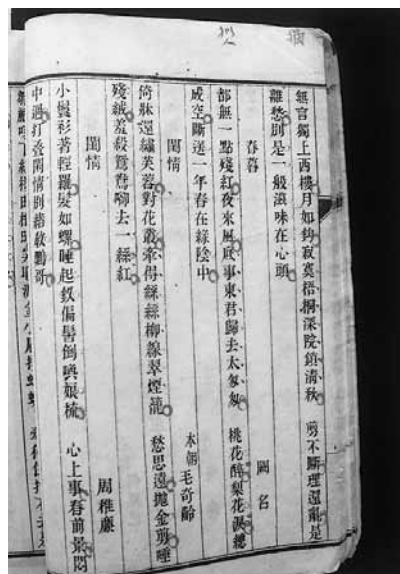 無言獨上西樓月如鈎寂寞梧桐深院鎖清秋　剪不斷理還亂是
離愁別是一般滋味在心頭
春暮　闕名
都無一點殘紅夜來風底事東君歸去太匆匆　桃花醉梨花淚總
成空斷送一年春在綠陰中
閨情　本朝毛奇齡
倚牀還繡芙蓉對花叢牽得絲絲柳線翠煙籠　愁思還拋金剪唾
殘絨羞殺鴛鴦啣去一絲紅
閨情　周稚廉
小鬟衫著輕羅髮如螺睡起釵偏髻倒喚娘梳　心上事春前景悶
中過打叠閑情別緒教鸚哥